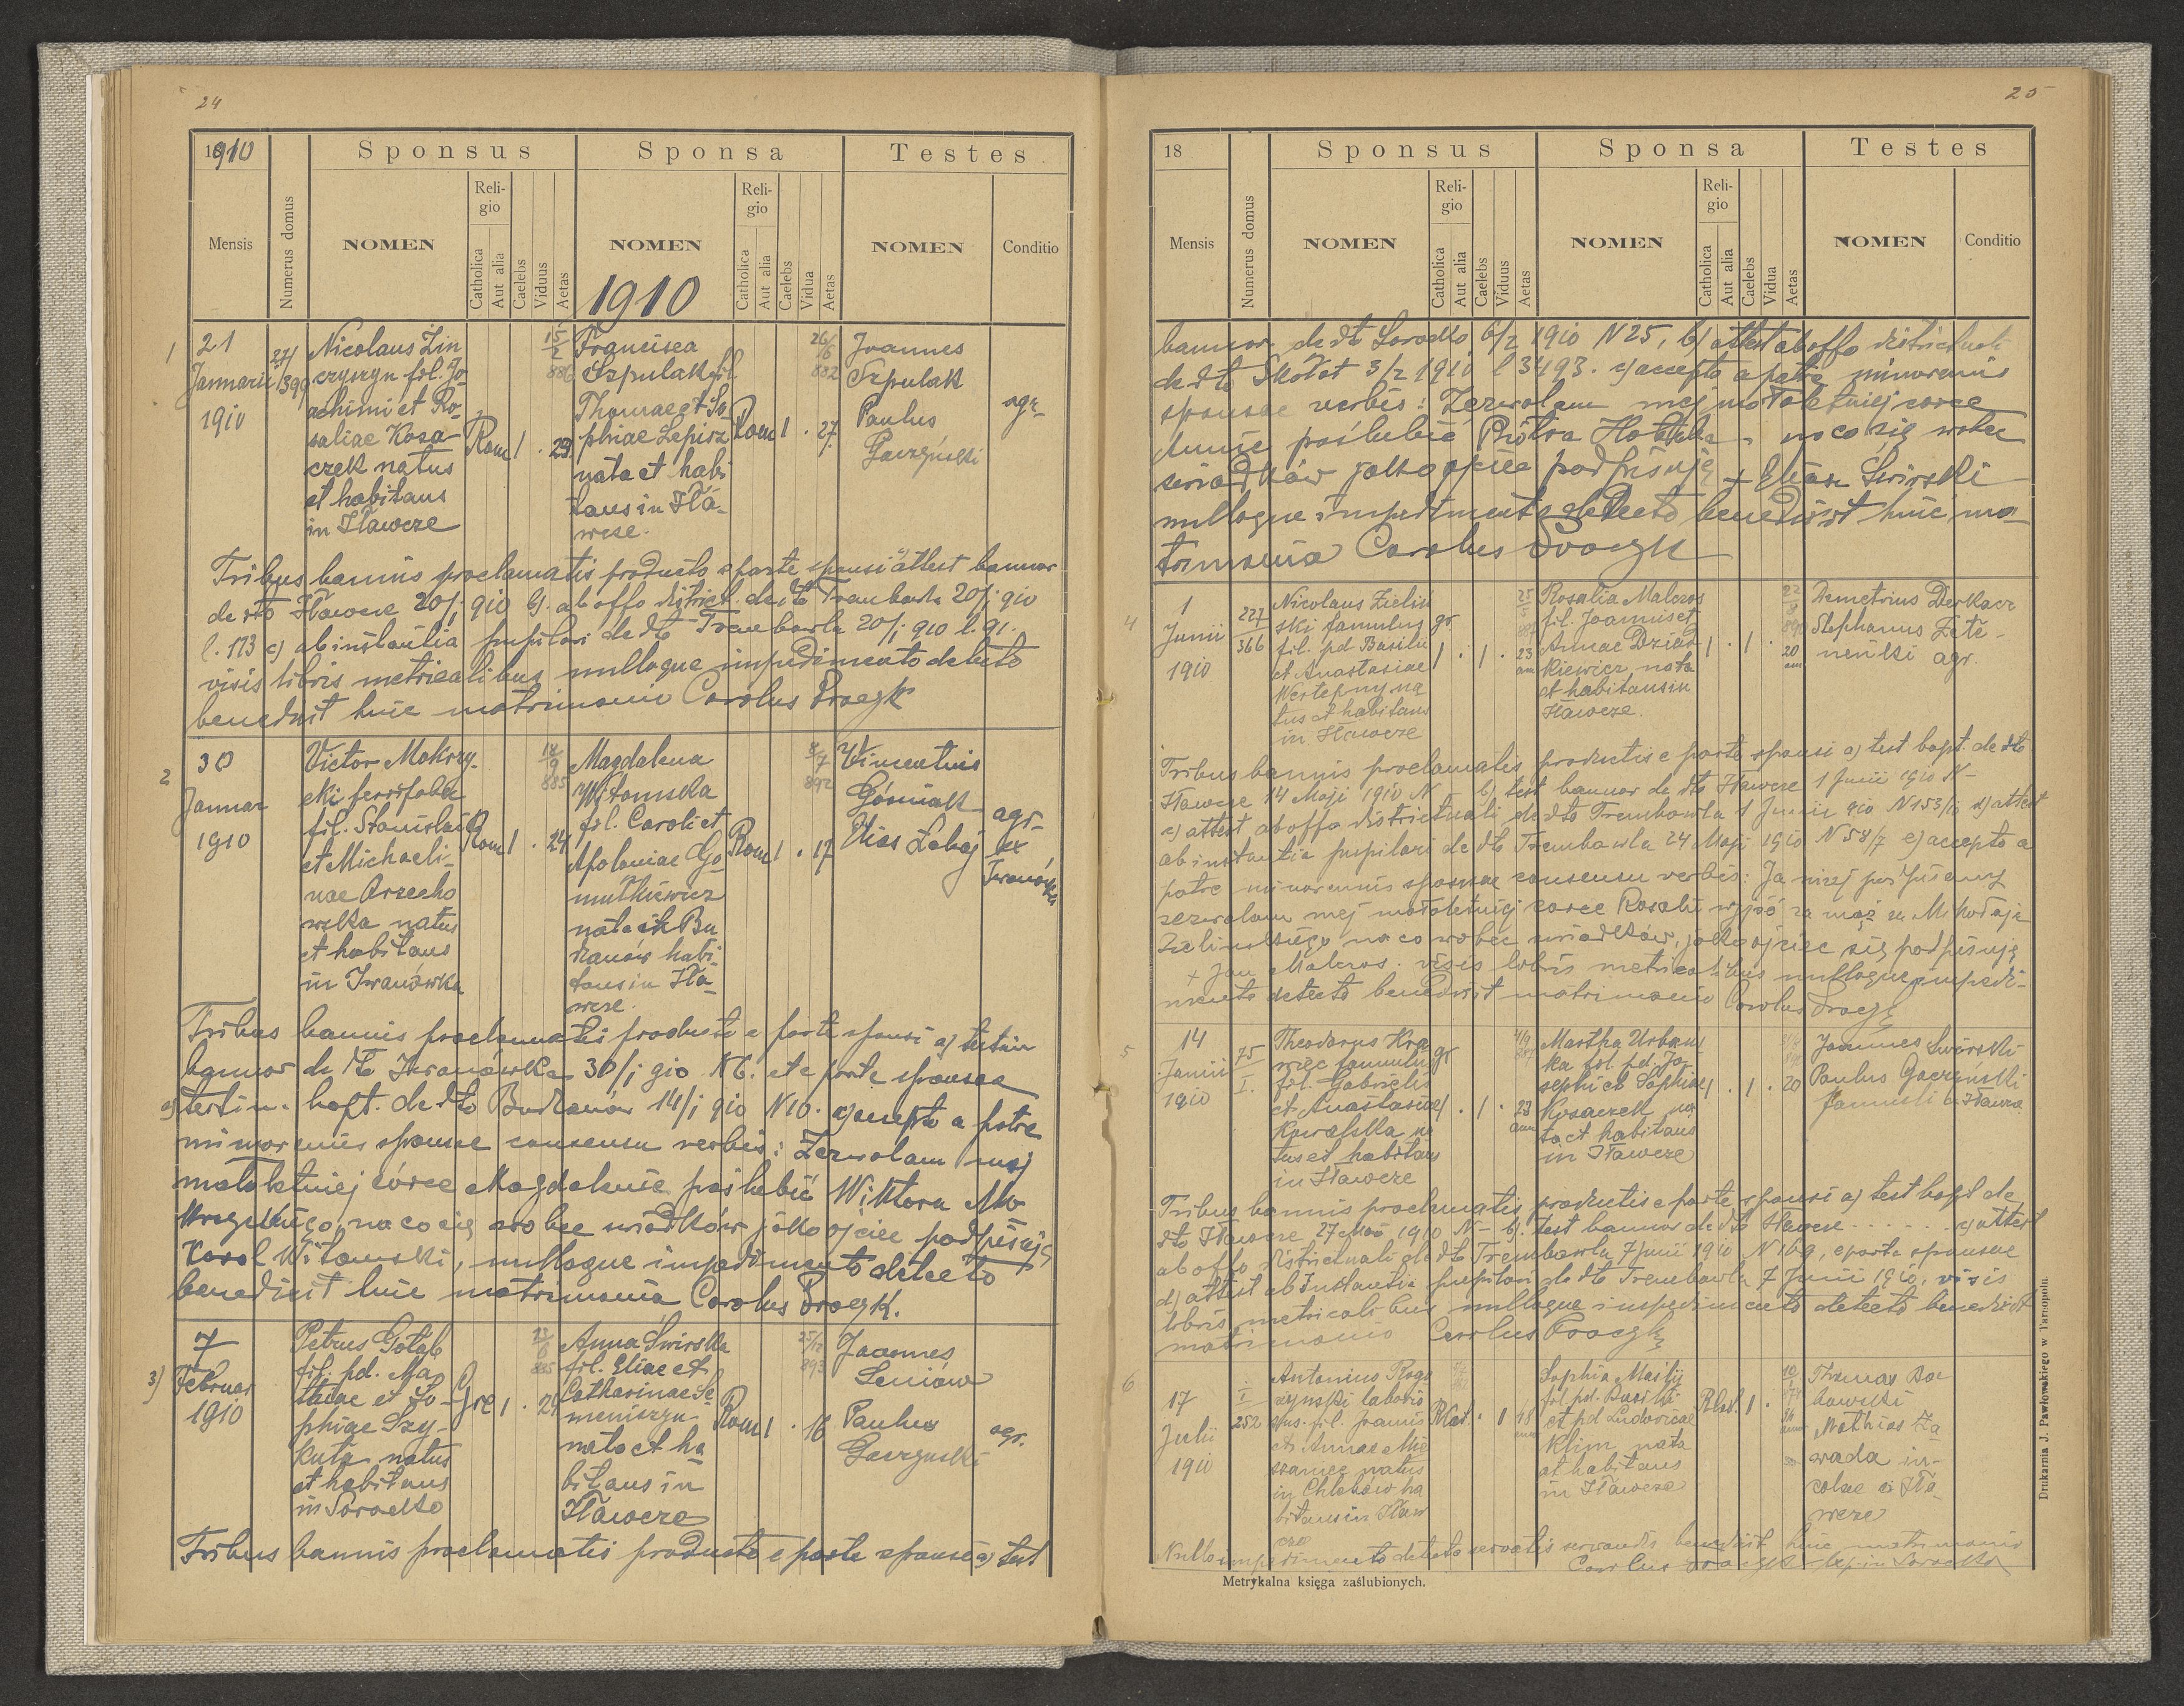 24
1910
Sponsus
Sponsa
Testes
Mensis
Numerus domus
NOMEN
Religio
Catholica
Aut alia
Caelebs
Viduus
Aetas
NOMEN
1910
Religio
Catholica
Aut alia
Caelebs
Vidua
Aetas
NOMEN
Conditio
1
21
Januarii
1910
271/399
Nicolaus Zin
czyszyn fil. Jo-
achimi et Ro-
saliae Kosa-
czek natus
et habitans
in Iławcze
Rom 1 . 23
15/2 886
Francisca
Szpulak fil.
Thomae et So
phiae Lepisz
nata et habi
tans in Iła-
wcze.
Rom 1 . 27
26/6 882
Joannes
Szpulak
Paulus
Gaczyński
agr.
Tribus bannis proclamatis producto e parte sponsi a) attest bannor
de dto Iławcze 20/1 910 b) ab offo district. de dto Trembowla 20/1 910
l. 173 c) ab instantia pupilari de dto Trembowla 20/1 910 l. 91.
visis libris metricalibus nulloque impedimento detecto
benedixit huic matrimonio Carolus Procyk
2
30
Januar
1910
Victor Mokrzy-
cki
fil. Stanislai
et Michaeli-
nae Orzecho
wska natus
et habitans
in Iwanówka
Rom 1 . 24
18/9 885
Magdalena
Witomska
fil. Caroli et
Apoloniae Go-
mutkiewicz
nata in Bu
dzanów habi-
tans in Iła-
wcze.
Rom 1 . 17
8/7 892
Vincentius
Górniak
Elias Zabój
agr.
ex
Iwanówka
Tribus bannis proclamatis producto e parte sponsi a) testim
bannor de dto Iwanówka 30/1 910 N6. et e parte sponsae
testim. bapt. de dto Budzanów 14/1 910 N10. c) accepto a patre
minorennis sponsae consensu verbis: Zezwolam mej
małoletniej córce Magdalenie poślubić Wiktora Mo
krzyckiego, na co się wobec świadków jako ojciec podpisuję
Karol Witomski, nulloque impedimento detecto
benedixit huic matrimonio Carolus Procyk.
3)
7
Februar
1910
Petrus Gołąb
fil. pd. Ma
thiae et So-
phiae Szy-
kuta natus
et habitans
in Sorocko
Gr 1 . 24
885
Anna Swirska
fil. Eliae et
Catharinae Se
meniszyn
nata et ha
bitans in
Iławcze
Rom 1 . 16
25/12 893
Joannes
Seniów
Paulus
Gaczyński
agr.
Tribus bannis proclamatis producto e parte sponsi a) test
25
18
Sponsus
Sponsa
Testes
Mensis
Numerus domus
NOMEN
Religio
Catholica
Aut alia
Caelebs
Viduus
Aetas
NOMEN
Religio
Catholica
Aut alia
Caelebs
Vidua
Aetas
NOMEN
Conditio
bannor de dto Sorocko 6/2 1910 N 25, b) attest ab offo districtuali
de dto Skałat 3/2 1910 l 3493. c) accepto a patre minorennis
sponsae verbis: Zezwolam mej małoletniej córce
Annie poślubić Piotra Gołąba, na co się wobec
świadków jako ojciec podpisuję + Eliasz Swirski
nulloque impedimento detecto benedixit huic ma-
trimonio Carolus Procyk
4
1
Junii
1910
227
366
Nicolaus Zieliń
ski famulus
fil. pd Basilii
et Anastasiae
na
tus et habitans
in Iławcze
gr
1 . 1 . 23
Rosalia Malcros
fil. Joannis et
Annae Dziad
kiewicz nata
et habitans in
Iławcze.
1 . 1 . 20
Demetrius Derkacz
Stephanus
agr.
Tribus bannis proclamatis productis e parte sponsi a) test bapt. de dto
Iławcze 14 Maji 1910 N - b) test bannor de dto Iławcze 1 Junii 1910 N-
c) attest ab offo districtuali de dto Trembowla 1 Junii 910 N 153/10 d) attest
ab instantia pupilari de dto Trembowla 24 Maji 1910 N 58/7 e) accepto a
patre minorennis sponsae consensu verbis: Ja niżej podpisany
zezwalam mej małoletniej córce Rosalii wyjść za mąż za Mikołaja
Zielińskiego na co wobec świadków, jako ojciec się podpisuję
+ Jan Malcros. visis libris metricalibus nulloque impedi-
mento detecto benedixit matrimonio Carolus Procyk
5
14
Junii
1910
75
I.
Theodorus Kra
wiec famulus
fil. Gabrielis
et Anastasiae
Kowalska na
tus et habitans
in Iławcze
gr
. 1 . 23
Martha Urbans
ka fil. pd. Jo-
sephi et Sophiae
Kosaczek na
ta et habitans
in Iławcze
1 . 1 . 20
Joannes Swirski
Paulus Gaczyński
Tribus bannis proclamatis productis e parte sponsi a) test bapt de
dto Iławcze 27 Maii 1910 N - b) test bannor de dto Iławcze ...... c) attest
ab offo districtuali de dto Trembowla 7 Junii 1910 N 169, e parte sponsae
d) attest ab instantia pupilari de dto Trembowla 7 Junii 1910, visis
libris metricalibus nulloque impedimento detecto benedixit
matrimonio Carolus Procyk
6
17
Julii
1910
I
252
Antonius Rogo
zynski
fil. Joannis
et Annae
natus
in Chlebów ha
bitans in Iław
cze
RCat. . 1 48
Sophia Masłij
fil. pd. Basilii
et pd Ludovicae
Klim nata
et habitans
in Iławcze
RCat. 1 .
Thomas
Mathias Za
wada in-
colae in Iła-
wcze
Nullo impedimento detecto servatis servandis benedixit huic matrimonio
Carolus Procyk
Metrykalna księga zaślubionych.
Drukarnia J. Pawłowskiego w Tarnopolu.